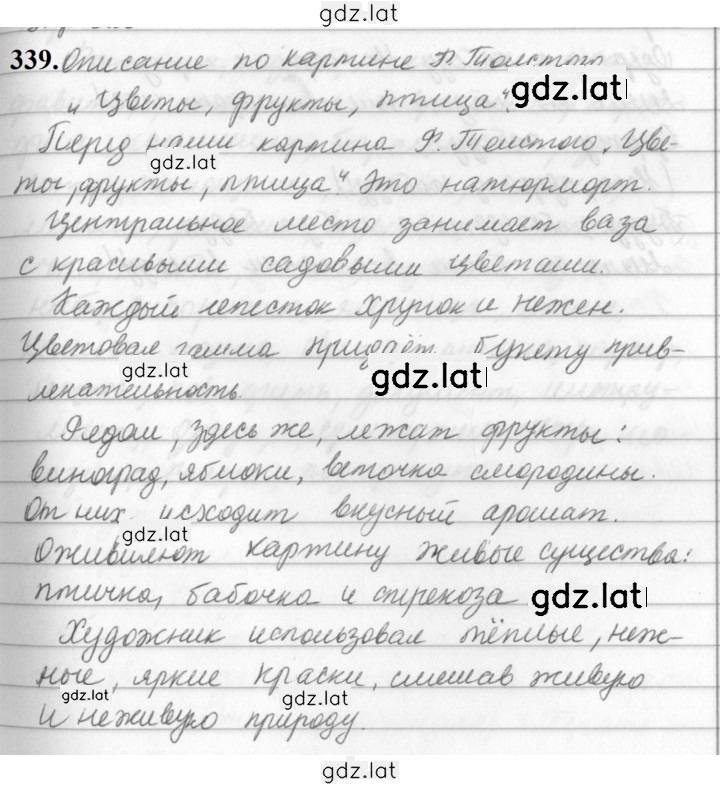 gdz.lat
339. Описание по картине Ф. Толстого
„Цветы, фрукты, птица". gdz.lat
Перед нами картина Ф. Толстого „Цве-
gdz.lat
ты, фрукты, птица" Это натюрморт.
Центральное место занимает ваза
с красивыми садовыми цветами.
Каждый лепесток хрупок и нежен.
Цветовая гамма придаёт букету прив-
gdz.lat gdz.lat
лекательность.
Рядом, здесь же, лежат фрукты:
виноград, яблоки, веточка смородины.
От них исходит вкусный аромат.
gdz.lat
Оживляют картину живые существа:
птичка, бабочка и стрекоза gdz.lat
Художник использовал тёплые, неж-
ные, яркие краски, смешав живую
gdz.lat gdz.lat
и неживую природу.
gdz.lat